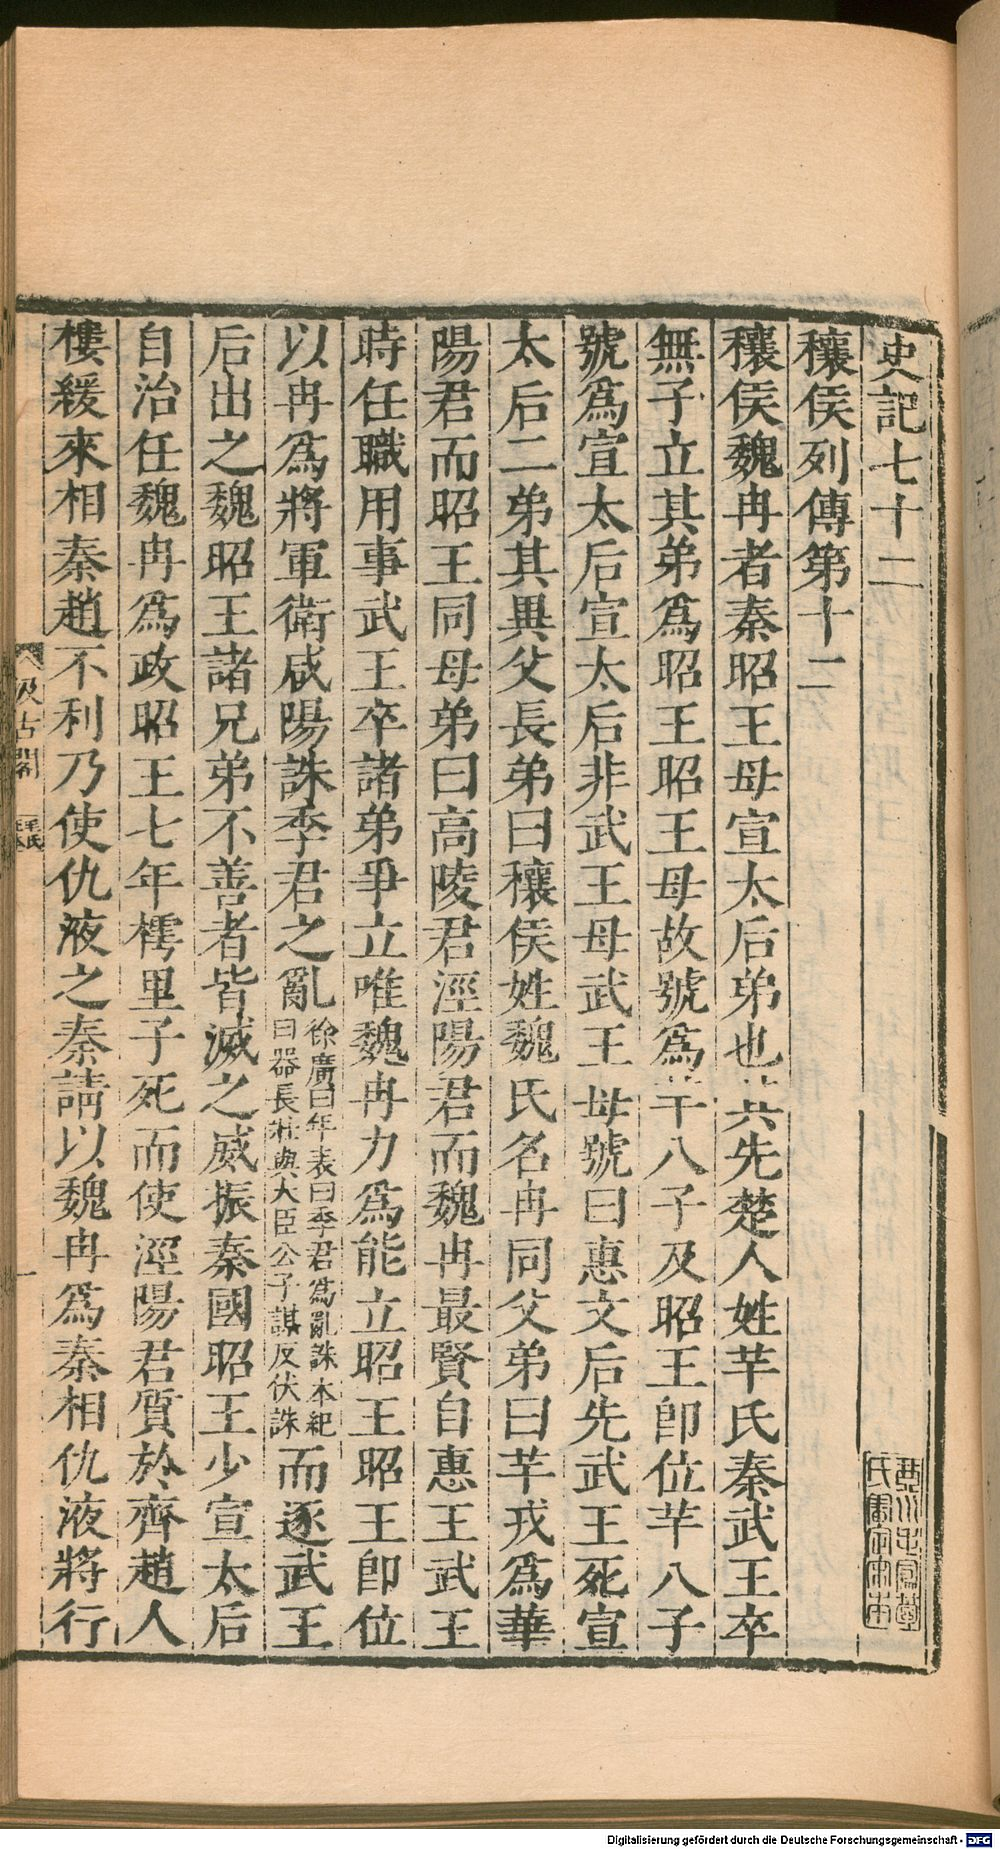 史記七十二
穰侯列傳第十二
穰侯魏冉者秦昭王母宣太后弟也其先楚人姓芊氏秦武王卒
無子立其弟爲昭王昭王母故號爲芊八子及昭王卽位芊八子
號爲宣太后宣太后非武王母武王母號曰惠文后先武王死宣
太后二弟其異父長弟曰穰侯姓魏氏名冉同父弟曰芊戎爲華
陽君而昭王同母弟曰高陵君涇陽君而魏冉最賢自惠王武王
時任職用事武王卒諸弟爭立唯魏冉力爲能立昭王昭王卽位
以冉爲將軍衛咸陽誅季君之亂
徐廣曰年表曰季君爲亂誅本紀
曰庶長壯與大臣公子謀反伏誅
而逐武王
后出之魏昭王諸兄弟不善者皆滅之威振秦國昭王少宣太后
自治任魏冉爲政昭王七年樗里子死而使涇陽君質於齊趙人
樓緩來相秦趙不利乃使仇液之秦請以魏冉爲秦相仇液將行
汲古閣
毛氏
一
Digitalisierung gefördert durch die Deutsche Forschungsgemeinschaft - DFG